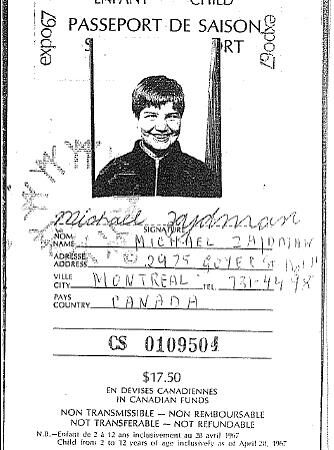 ENFANT CHILD
expo67
PASSEPORT DE SAISON
expo67
ORT
Michael Zajdman
SIGNATURE
NOM
NAME MICHAEL ZAJDMAN
ADRESSE
ADDRESS 2975 GOYER ST
VILLE
CITY MONTREAL TEL. 731-4498
PAYS
COUNTRY CANADA
CS 0109504
$17.50
EN DEVISES CANADIENNES
IN CANADIAN FUNDS
NON TRANSMISSIBLE — NON REMBOURSABLE
NOT TRANSFERABLE — NOT REFUNDABLE
N.B.—Enfant de 2 à 12 ans inclusivement au 28 avril 1967
Child from 2 to 12 years of age inclusively as of April 28, 1967